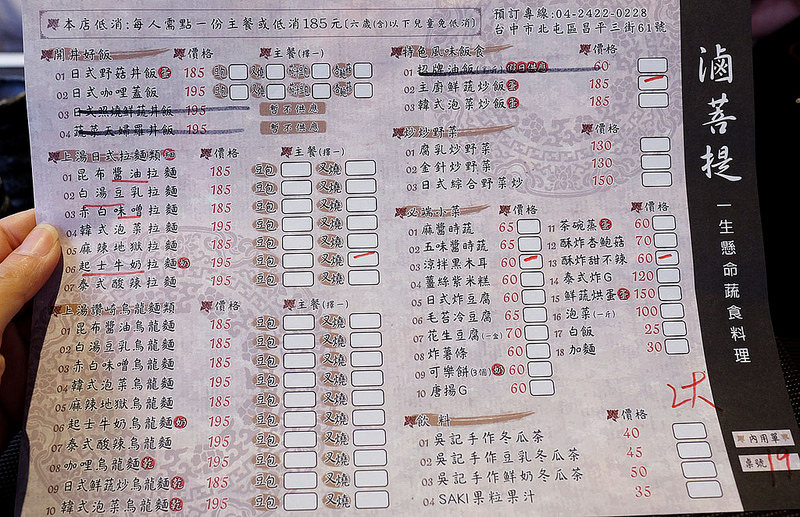 本店低消:每人需點一份主餐或低消185元(六歲(含)以下兒童免低消)
預訂專線:04-2422-0228
台中市北屯區昌平三街61號
開丼好飯 價格 主餐(擇一)
01 日式野菇丼飯 蛋 185
02 日式咖哩蓋飯 185
03 日式照燒鮮蔬丼飯 195 暫不供應
04 蔬菜天婦羅丼飯 195 暫不供應
上湯日式拉麵類 價格 主餐(擇一)
01 昆布醬油拉麵 185 豆包 叉燒
02 白湯豆乳拉麵 185 豆包 叉燒
03 赤白味噌拉麵 185 豆包 叉燒
04 韓式泡菜拉麵 185 豆包 叉燒
05 麻辣地獄拉麵 185 豆包 叉燒
06 起士牛奶拉麵 奶 195 豆包 叉燒
07 泰式酸辣拉麵 195 豆包 叉燒
上湯讚崎烏龍麵類 價格 主餐(擇一)
01 昆布醬油烏龍麵 185 豆包 叉燒
02 白湯豆乳烏龍麵 185 豆包 叉燒
03 赤白味噌烏龍麵 185 豆包 叉燒
04 韓式泡菜烏龍麵 185 豆包 叉燒
05 麻辣地獄烏龍麵 185 豆包 叉燒
06 起士牛奶烏龍麵 奶 195 豆包 叉燒
07 泰式酸辣烏龍麵 195 豆包 叉燒
08 咖哩烏龍麵 乾 195 豆包 叉燒
09 日式鮮蔬炒烏龍麵 乾 195 豆包 叉燒
10 韓式泡菜烏龍麵 乾 195 豆包 叉燒
特色風味飯食 價格
01 招牌油飯 假日供應 60
02 主廚鮮蔬炒飯 蛋 185
03 韓式泡菜炒飯 蛋 185
炒野菜 價格
01 腐乳炒野菜 130
02 金針炒野菜 130
03 日式綜合野菜炒 150
小菜 價格 價格
01 麻醬時蔬 65
02 五味醬時蔬 65
03 涼拌黑木耳 60
04 薑絲紫米糕 60
05 日式炸豆腐 60
06 毛苔冷豆腐 65
07 花生豆腐(一盒) 70
08 炸薯條 60
09 可樂餅(3個) 奶 60
10 唐揚G 60
11 茶碗蒸 蛋 60
12 酥炸杏鮑菇 70
13 酥炸甜不辣 60
14 泰式炸G 120
15 鮮蔬烘蛋 蛋 150
16 泡菜(一斤) 100
17 白飯 25
18 加麵 30
飲料 價格
01 吳記手作冬瓜茶 40
02 吳記手作豆乳冬瓜茶 45
03 吳記手作鮮奶冬瓜茶 50
04 SAKI果粒果汁 35
滷菩提
一生懸命蔬食料理
內用單
桌號 19